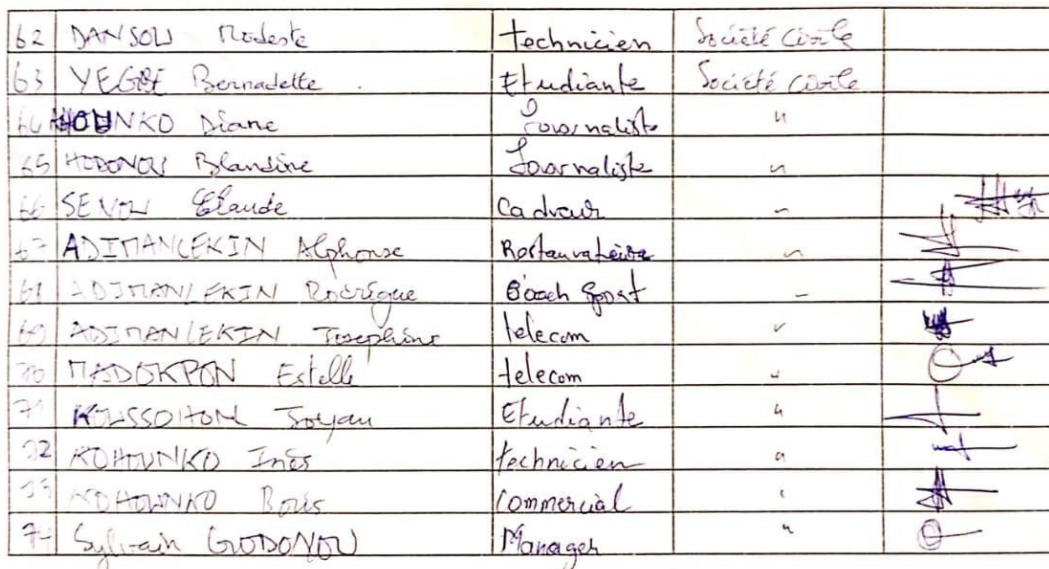 62 DANSOU Modeste technicien Société Civile
63 YEGBE Bernadette Etudiante Société Civile
64 HOUNKO Diane Journaliste "
65 HODONOU Blandine Journaliste "
66 SENOU Claude Cadreur "
67 ADIMANLEKIN Alphonse "
68 ADIMANLEKIN Rodrigue Coach Sport "
69 ADIMANLEKIN Josephine telecom "
70 MADOKPON Estelle telecom "
71 Etudiante "
72 KOHOUNKO Inès technicien "
73 KOHOUNKO Boris Commercial "
74 Sylvain GODONOU Manager "